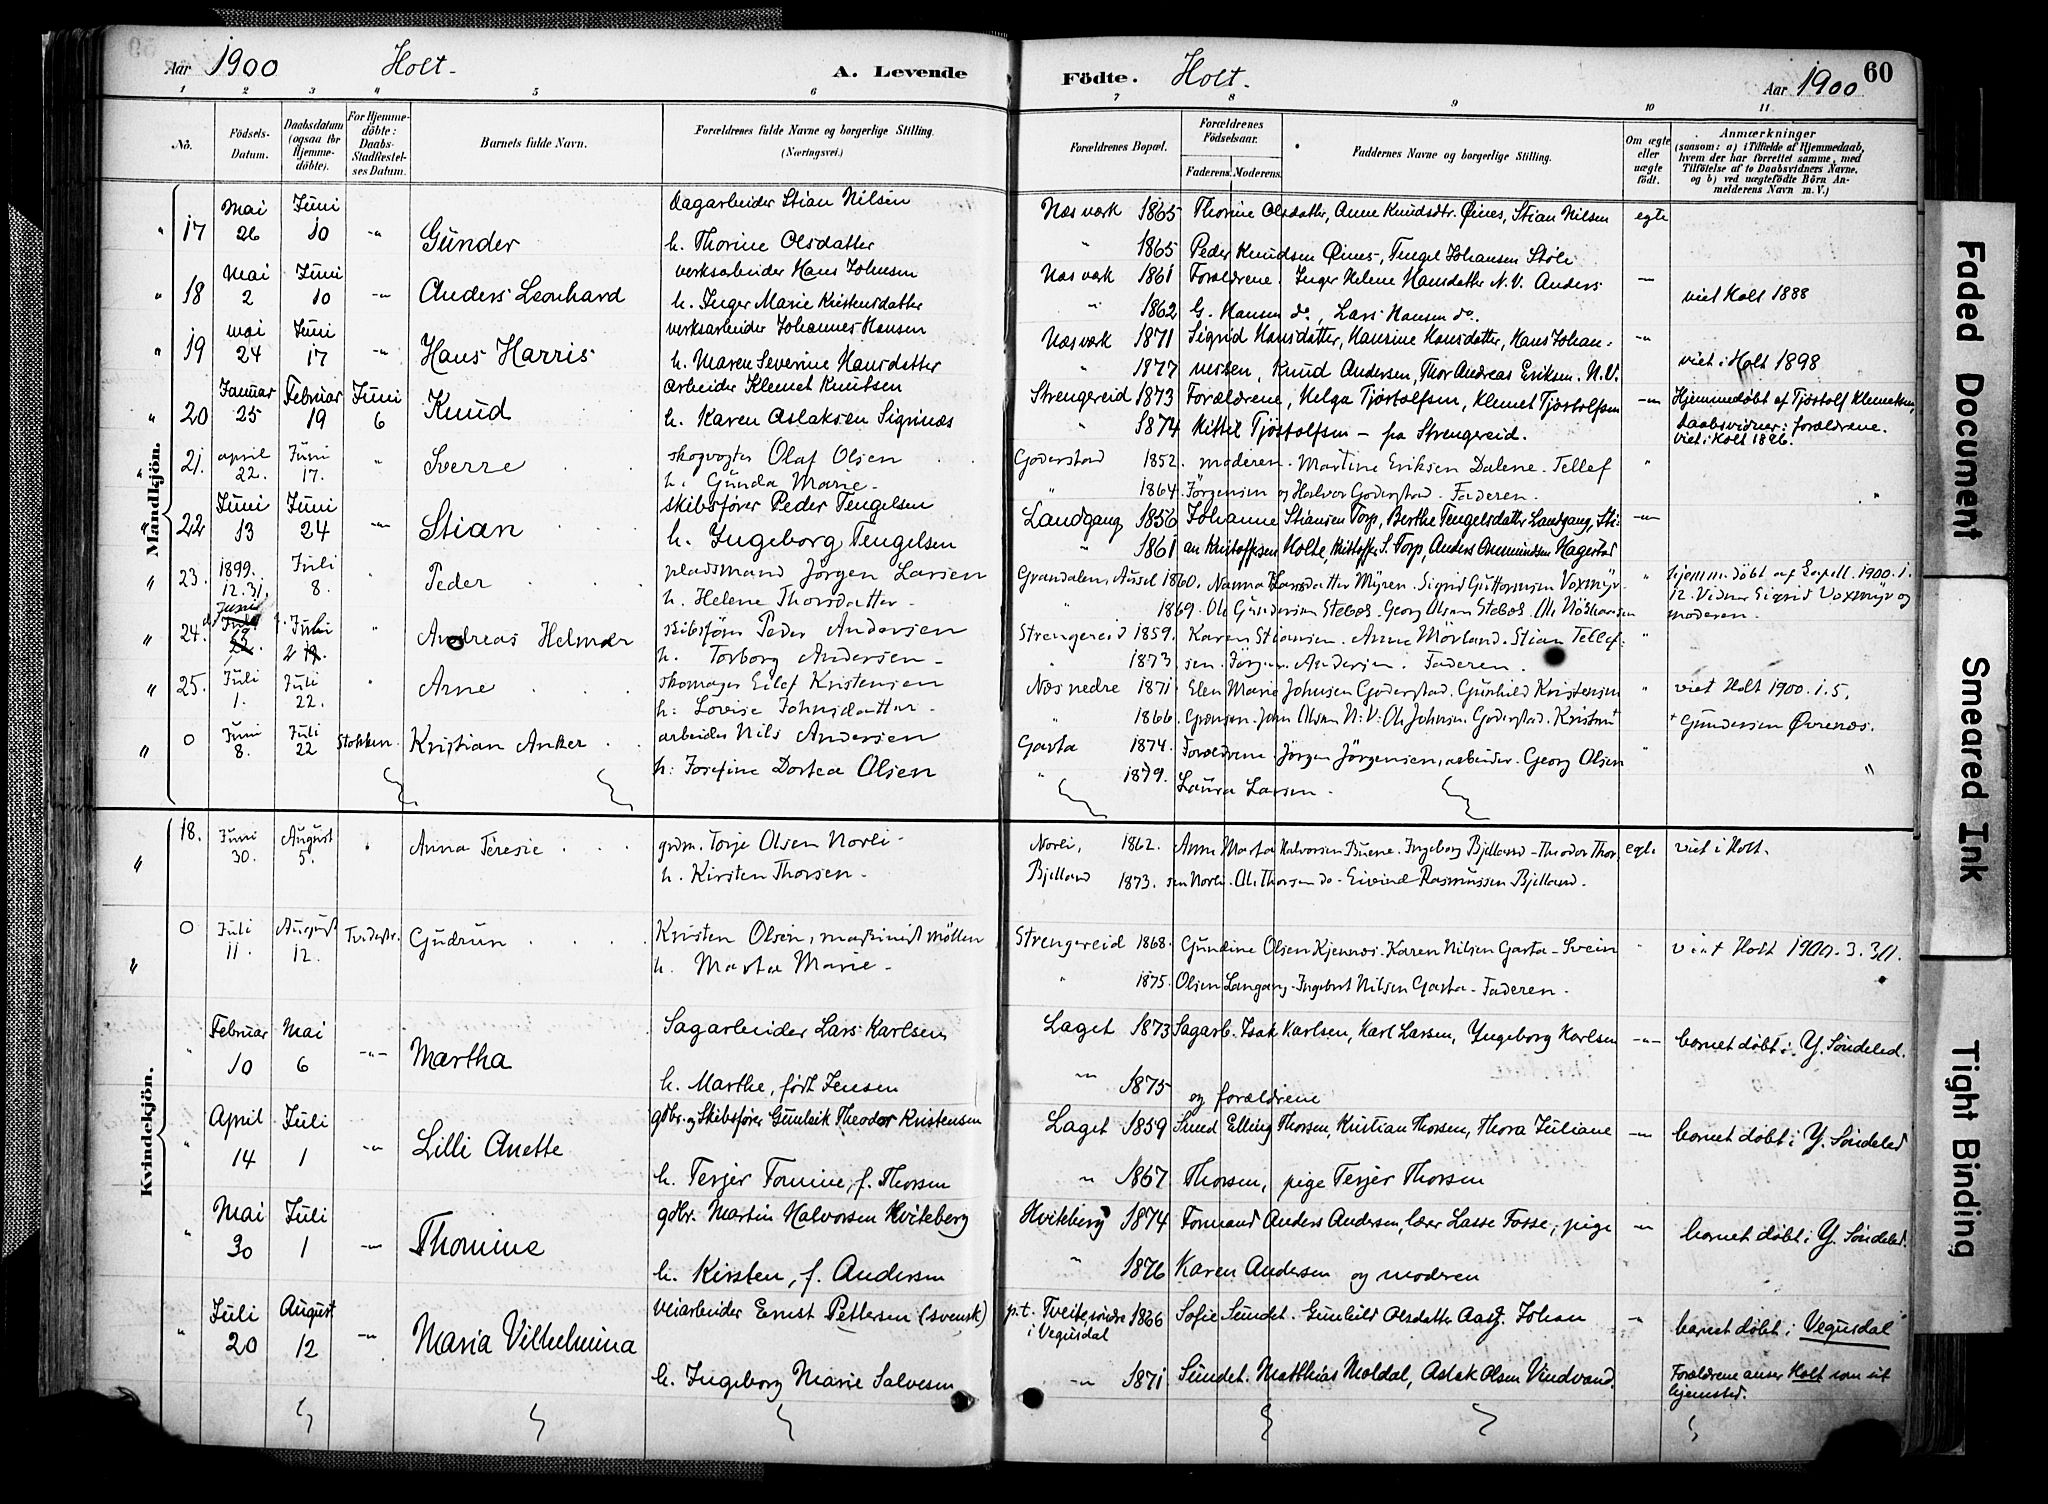 Aar 1900 Holt. A. Levende Födte. Holt. Aar 1900 60
1 2 3 4 5 6 7 8 9 10 11
No. Födsels-Datum. Daabsdatum (ogsaa for Hjemme-döbte). For Hjemme-döbte: Daabs-Stadfæstel-ses Datum. Barnets fulde Navn. Forældrenes fulde Navne og borgerlige Stilling. (Næringsvei.) Forældrenes Bopæl. Forældrenes Födselsaar. Faderens. Moderens. Faddernes Navne og borgerlige Stilling. Om ægte eller uægte födt. Anmærkninger (saasom: a) i Tilfælde af Hjemmedaab, hvem der har forrettet samme, med Tilföielse af to Daabsvidners Navne, og b) ved uægtefödte Börn An-melderens Navn m. V.)
Mandkjön.
17 Mai 26 Juni 10 Gunder
Dagarbeider Stian Nilsen Næs værk 1865 Thorine Olsdatter, Anne Knudsdtr. Øines, Stian Nilsen egte
h. Thorine Olsdatter 1865 Peder Knudsen Øines, Tengel Johansen Støle
18 Mai 2 Juni 10 Anders Leonhard
verksarbeider Hans Johnsen Næs værk 1861 Forældrene. Inger Helene Hansdatter N.V. Anders
h. Inger Marie Kristensdatter 1862 G. Hansen do., Lars Hansen do. viet Holt 1888
19 mai 24 Juni 17 Hans Harris
verksarbeider Johannes Hansen Næs værk 1871 Sigrid Hansdatter, Hansine Hansdatter, Hans Johan-
h. Maren Severine Hansdatter 1877 nessen, Knud Andersen, Thor Andreas Eriksen. N.V. viet i Holt 1898
20 Januar 25 Februar 19 Juni 6 Knud
arbeider Klemet Knutsen Strengereid 1873 Forældrene, Helga Tjøstolfsen, Klemet Tjøstolfsen Hjemmedøbt af Tjøstolf Klemetsen,
h. Karen Aslaksen Siginæs 1874 Kittil Tjøstolfsen - fra Strengereid. Daabsvidner: forældrene.
viet i Holt 1896.
21. april 22. Juni 17. Sverre
skogvogter Olaf Olsen Goderstad 1852. moderen. Martine Eriksen Dalene. Tellef
h. Gunda Marie. 1864. Jørgensen og Halvor Goderstad. Faderen.
22 Juni 13 Juni 24 Stian
skibsfører Peder Tengelsen Landgang 1856 Johanne Stiansen Torp, Berthe Tengelsdatter Landgang, Sti-
h. Ingeborg Tengelsen 1861 an Kristoffersen Holte, Kristoffer S. Torp, Anders Osmundsen Hagestad
23. 1899. 12.31. Juli 8. Peder
pladsmand Jørgen Larsen Grøndalen, Aussel 1860. Nanna Larsdatter Myren. Sigrid Guttormsen Voxmyr. hjemmedøbt af 1900.1.
h. Helene Thorsdatter. 1869. Ole Gundersen Stebøl. Georg Olsen Stebøl. 12. Vidner Sigrid Voxmyr og
moderen.
24. Juni Juli 2 Andreas Helmer
skibsfører Peder Andersen Strengereid 1859. Karen Stiansen. Anne Mørland. Stian Tellef-
h. Torborg Andersen. 1873. sen. Jørgen Andersen. Faderen.
25. Juli 1. Juli 22. Arne
skomager Eilef Kristensen Næs nedre 1871. Elen Marie Johnsen Goderstad. Gunhild Kristensen viet Holt 1900.1.5.
h: Lovise Johnsdatter. 1866. John Olsen N:V: Ole Johnsen Goderstad. Kristen+ + Gundersen Øvrenæs.
0 Juni 8. Juli 22 Stokken. Kristian Anker
arbeider Nils Andersen Garta 1874. Forældrene. Jørgen Jörgensen, arbeider. Georg Olsen
h: Josefine Dortea Olsen 1879. Laura Larsen.
Kvindekjön.
18. Juni 30. August 5. Anna Teresie
grdm. Torje Olsen Norli. Norli, 1862. Anne Marta Halvorsen Buene. Ingeborg Bjelland - Theodor Thor. egte viet i Holt.
h. Kirsten Thorsen. Bjelland 1873. sen Norli. Ole Thorsen do - Eivind Rasmussen Bjelland.
0 Juli 11. August 12. Tvedestr. Gudrun
Kristen Olsen, maskinist Møllen Strengereid 1868. Gundine Olsen Kjennæs. Karen Nilsen Garta - Svein viet Holt 1900.3.30.
h. Marta Marie. 1875. Olsen Langang - Ingebret Nilsen Garta - Faderen.
Februar 10 Mai 6 Martha
Sagarbeider Lars Karlsen Laget 1873 Sagarb. Isak Karlsen, Karl Larsen, Yngeborg Karlsen barnet døbt i Y. Søndeled.
h. Marthe, født Jensen 1875 og forældrene
April 14 Juli 1 Lilli Anette
gdbr. og Skibsfører Gunleik Theodor Kristensen Laget 1859 Smed Elling Thorsen, Kristian Thorsen, Thora Juliane barnet døbt i Y. Søndeled
h. Terjer Tomine, f. Thorsen 1867 Thorsen, pige Terjer Thorsen
Mai 30 Juli 1 Thomine
gdbr. Martin Halvorsen Hviteberg Hviteberg 1874 Formand Anders Andersen, lærer Lasse Fosse, pige barnet døbt i Y. Søndeled.
h. Kirsten, f. Andersen 1876 Karen Andersen og moderen
Juli 20 August 12 Maria Vilhelmina
Veiarbeider Ernst Pettersen (svensk) p.t. Tveite, søndre i Vegusdal 1866 Sofie Sundet. Gunhild Olsdatter Aas. Johan barnet døbt i Vegusdal
h. Ingeborg Marie Salvesen 1871 Sundet. Matthias Moldal, Aslak Olsen Vindvand. Forældrene anser Holt som sit
hjemsted.
Faded Document
Smeared Ink
Tight Binding